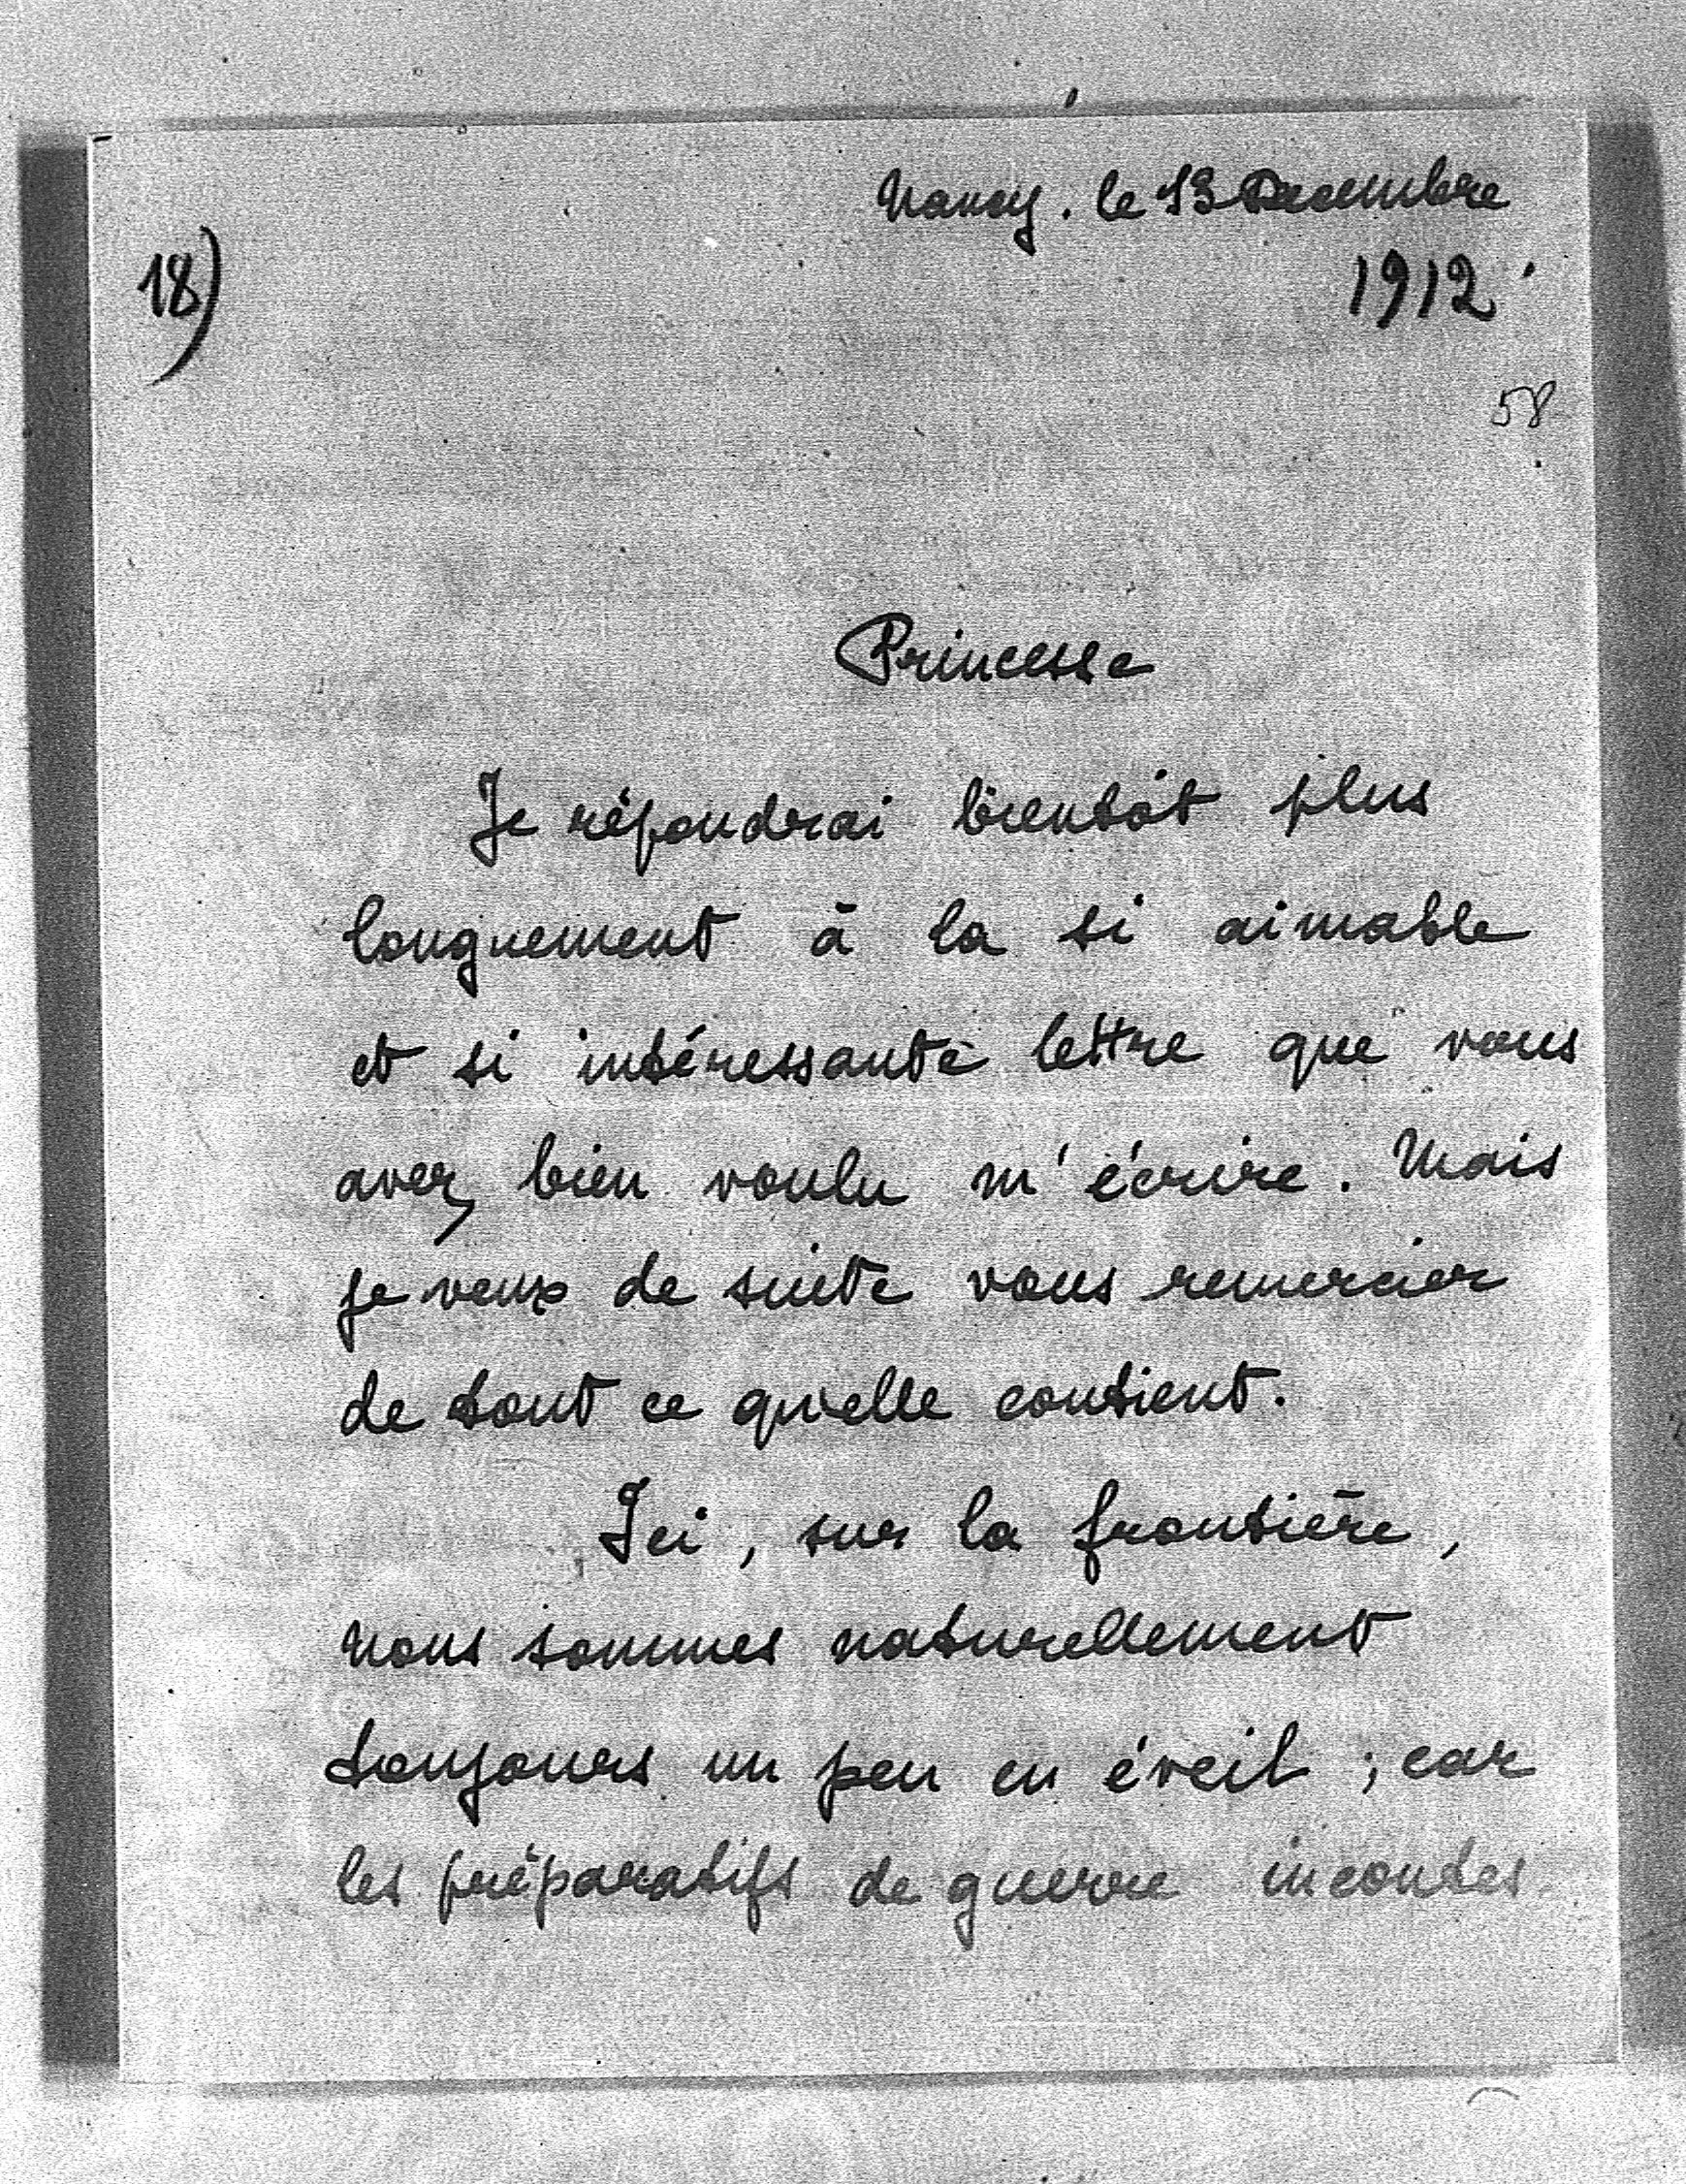 Nancy. le 13 Decembre
1912.
18)
58
Princesse
Je répondrai bientôt plus
longuement à la si aimable
et si intéressante lettre que vous
avez bien voulu m'écrire. Mais
je veux de suite vous remercier
de tout ce qu'elle contient.
Ici, sur la frontière,
nous sommes naturellement
toujours un peu en éveil ; car
les préparatifs de guerre